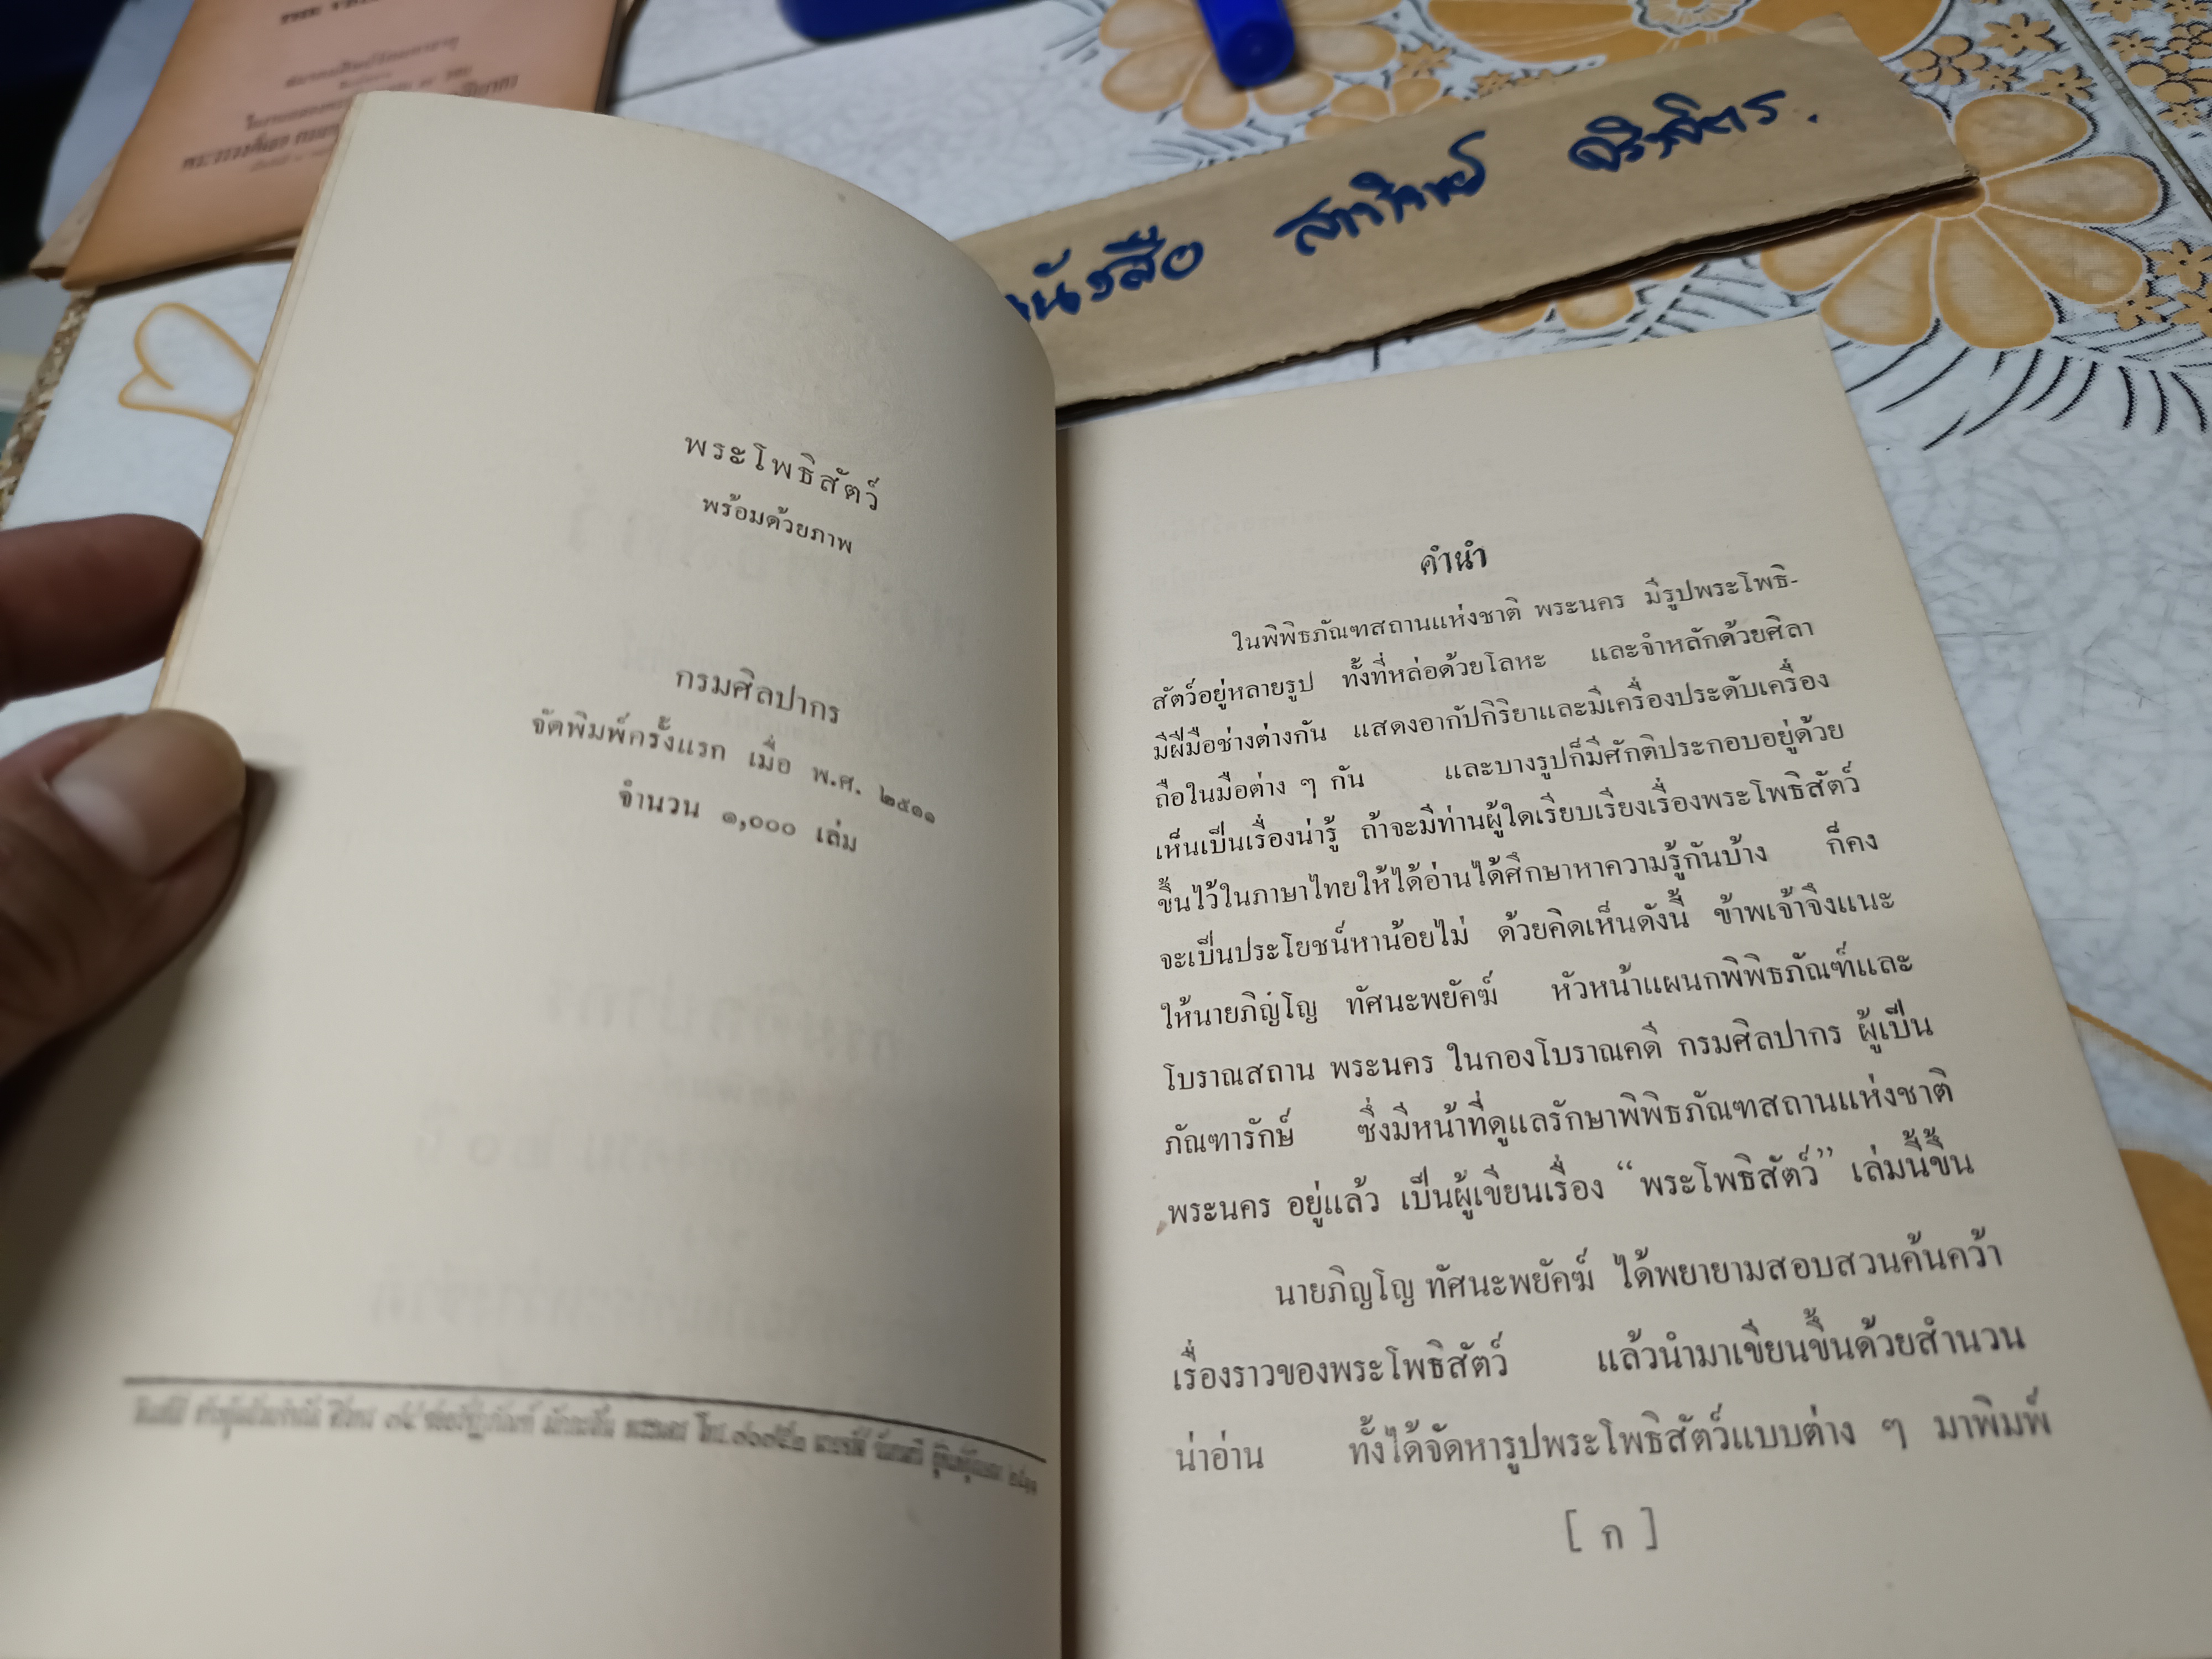 พระโพธิสัตว์
พร้อมด้วยภาพ
กรมศิลปากร
จัดพิมพ์ครั้งแรก เมื่อ พ.ศ. ๒๕๑๑
จำนวน ๑,๐๐๐ เล่ม
หนังสือ
คำนำ
ในพิพิธภัณฑสถานแห่งชาติ พระนคร มีรูปพระโพธิ-
สัตว์อยู่หลายรูป ทั้งที่หล่อด้วยโลหะ และจำหลักด้วยศิลา
มีฝีมือช่างต่างกัน แสดงอากัปกิริยาและมีเครื่องประดับเครื่อง
ถือในมือต่าง ๆ กัน และบางรูปก็มีศักติประกอบอยู่ด้วย
เห็นเป็นเรื่องน่ารู้ ถ้าจะมีท่านผู้ใดเรียบเรียงเรื่องพระโพธิสัตว์
ขึ้นไว้ในภาษาไทยให้ได้อ่านได้ศึกษาหาความรู้กันบ้าง ก็คง
จะเป็นประโยชน์หาน้อยไม่ ด้วยคิดเห็นดังนี้ ข้าพเจ้าจึงแนะ
ให้นายภิญโญ ทัศนะพยัคฆ์ หัวหน้าแผนกพิพิธภัณฑ์และ
โบราณสถาน พระนคร ในกองโบราณคดี กรมศิลปากร ผู้เป็น
ภัณฑารักษ์ ซึ่งมีหน้าที่ดูแลรักษาพิพิธภัณฑสถานแห่งชาติ
พระนคร อยู่แล้ว เป็นผู้เขียนเรื่อง “พระโพธิสัตว์” เล่มนี้ขึ้น
นายภิญโญ ทัศนะพยัคฆ์ ได้พยายามสอบสวนค้นคว้า
เรื่องราวของพระโพธิสัตว์ แล้วนำมาเขียนขึ้นด้วยสำนวน
น่าอ่าน ทั้งได้จัดหารูปพระโพธิสัตว์แบบต่าง ๆ มาพิมพ์
[ ก ]